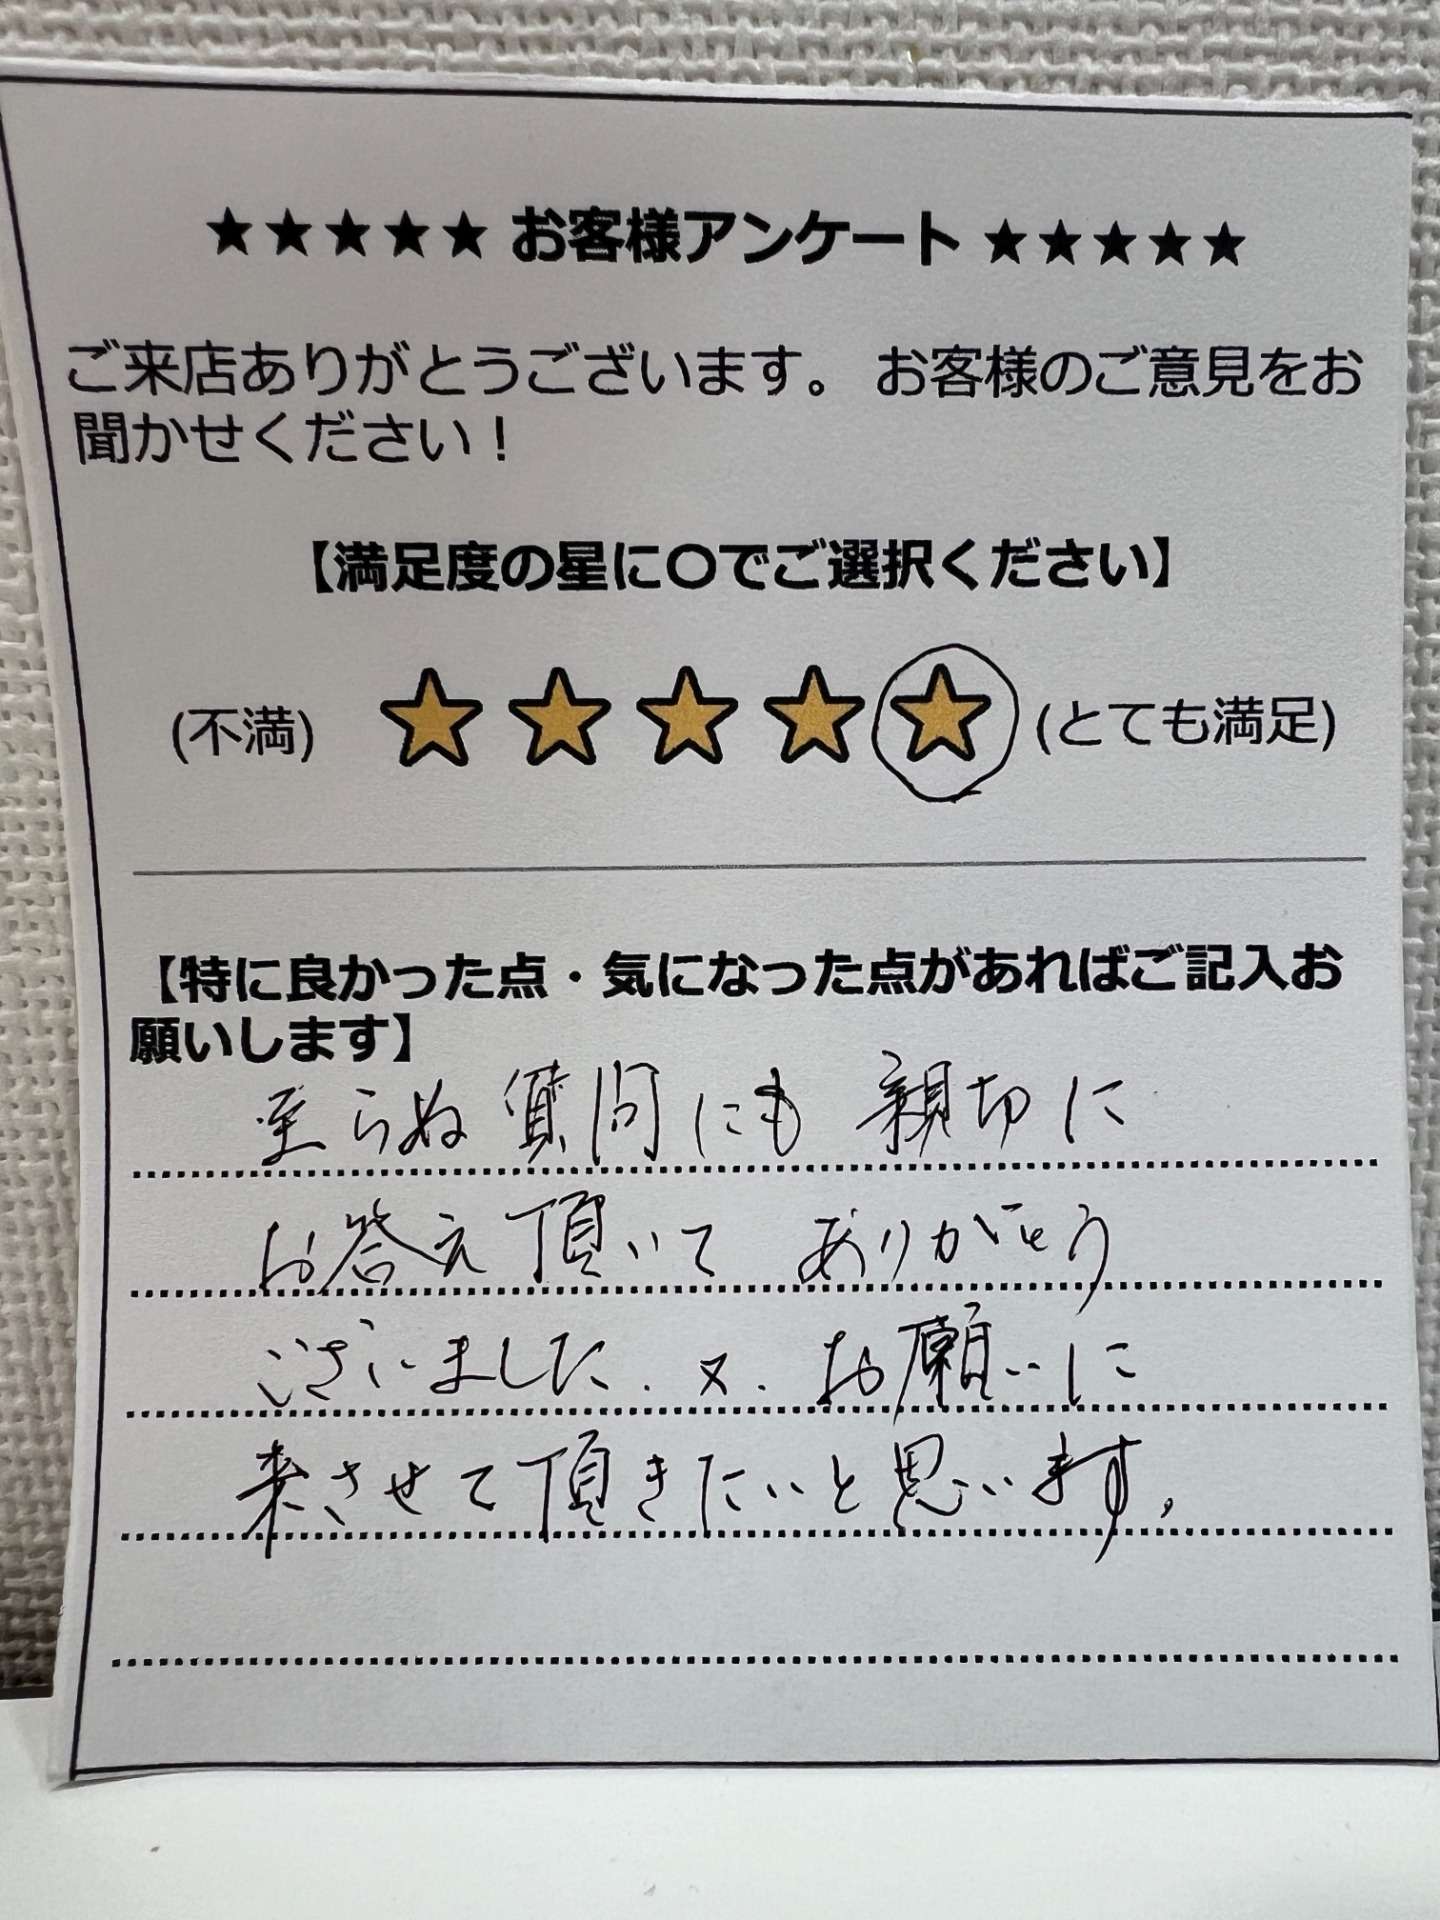 ★★★★★ お客様アンケート ★★★★★
ご来店ありがとうございます。 お客様のご意見をお
聞かせください！
【満足度の星に〇でご選択ください】
(不満) ★★★★★ (とても満足)
【特に良かった点・気になった点があればご記入お
願いします】
至らぬ質問にも親切に
お答え頂いてありがとう
ございました. 又. お願いに
来させて頂きたいと思います。